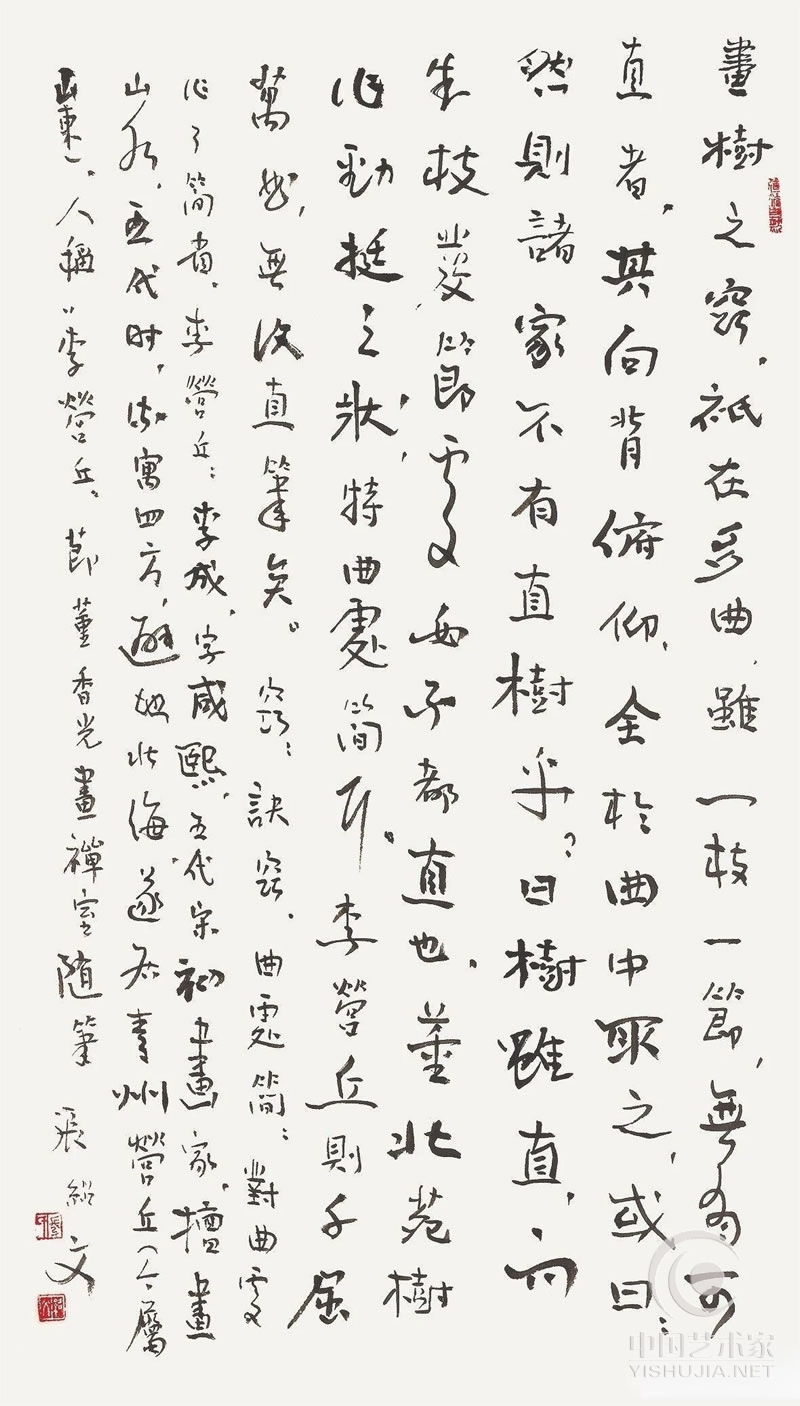 畫樹之竅，祇在多曲，雖一枝一節，無有可
直者，其向背俯仰，全於曲中取之，或曰：
然則諸家不有直樹乎？曰樹雖直，而
生枝發節處必不都直也，董北苑樹
作勁挺之狀，特曲處簡耳。李營丘則千屈
萬曲，無復直筆矣。竅：訣竅，曲處簡：對曲處
作了簡省。李營丘：李成，字咸熙，五代宋初畫家，擅畫
山水，五代时，流寓四方，避地北海，遂居青州營丘（今屬
山東），人稱“李營丘。節董香光畫禪室随筆 張文
中国艺术家
YISHUJIA.NET